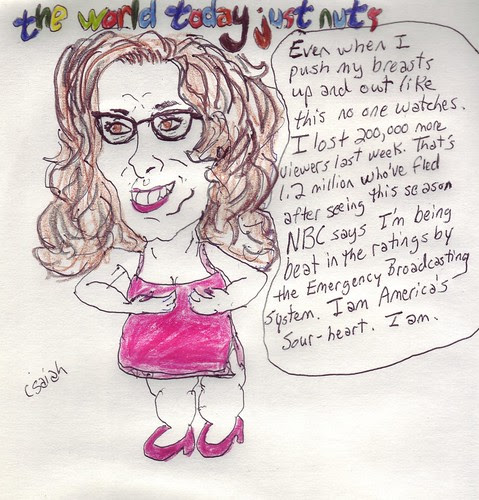 the world today just nuts
Even when I
push my breasts
up and out like
this no one watches.
I lost 200,000 more
viewers last week. That's
1.2 million who've fled
after seeing this season
NBC says I'm being
beat in the ratings by
the Emergency Broadcasting
System. I am America's
Sour-heart. I am.
c'saiah